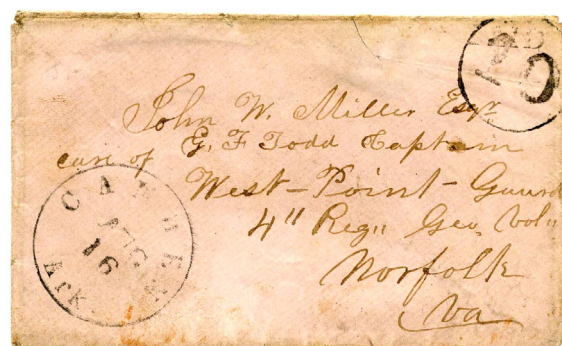 PAID
10
John W. Miller Esqr
care of G. F Todd Captain
West-Point-Guard
4" Reg" Geo, Vol"
Norfolk
Va
CAMDEN
AUG
16
Ark.